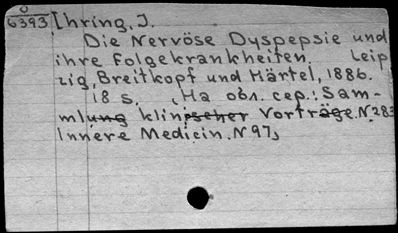 0
6393 Ihring, J.
Die Nervöse Dyspepsie und
ihre Folgekrankheiten. Leip
zig, Breitkopf und Härtel, 1886.
18 s. (На обл. сер.: Sam-
mlung klinischer Vorträge. N 283
Innere Medicin. N 97)